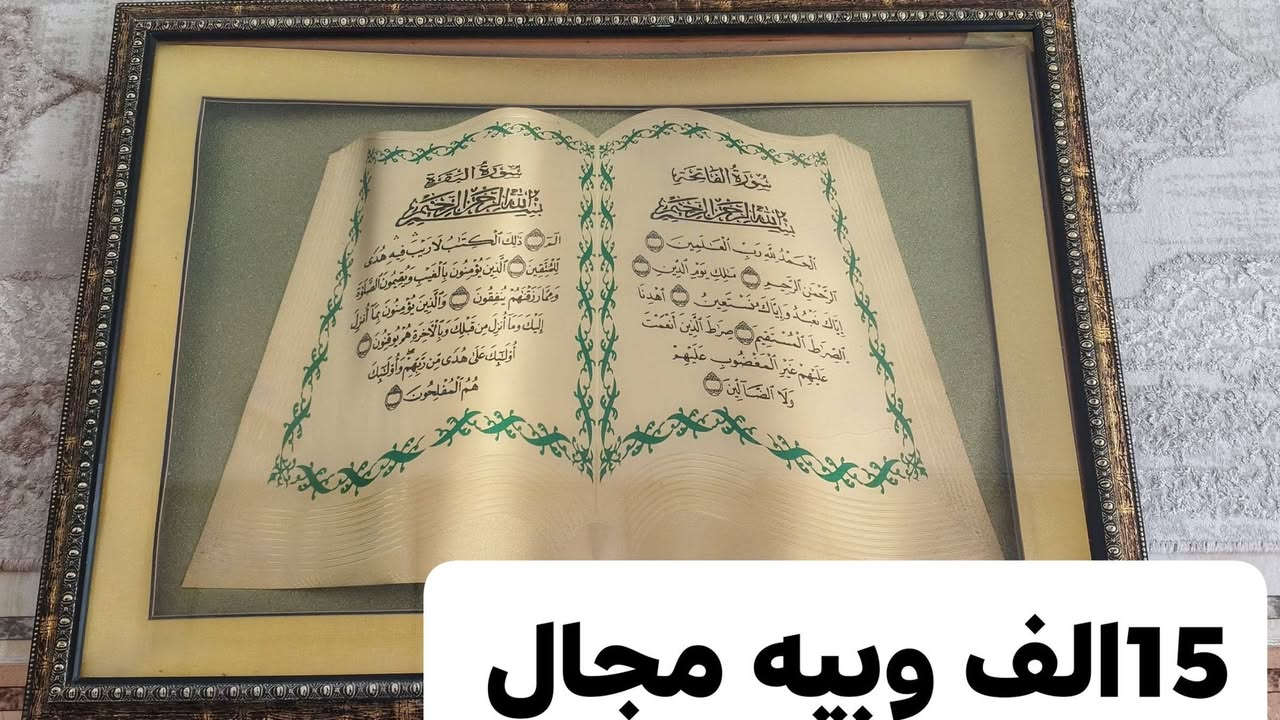 سُورَةُ الفَاتِحَةِ
بِسْمِ اللهِ الرَّحْمٰنِ الرَّحِيمِ
اَلْحَمْدُ لِلّٰهِ رَبِّ الْعَـٰلَمِينَ
اَلرَّحْمٰنِ الرَّحِيمِ مَـٰلِكِ يَوْمِ الدِّينِ
إِيَّاكَ نَعْبُدُ وَإِيَّاكَ نَسْتَعِينُ اَهْدِنَا
الصِّرَاطَ الْمُسْتَقِيمَ صِرَاطَ الَّذِينَ أَنْعَمْتَ
عَلَيْهِمْ غَيْرِ الْمَغْضُوبِ عَلَيْهِمْ
وَلَا الضَّآلِّينَ
سُورَةُ البَقَرَةِ
بِسْمِ اللهِ الرَّحْمٰنِ الرَّحِيمِ
الٓمٓ ذَٰلِكَ الْكِتَـٰبُ لَا رَيْبَ فِيهِ هُدًى
لِلْمُتَّقِينَ الَّذِينَ يُؤْمِنُونَ بِالْغَيْبِ وَيُقِيمُونَ الصَّلَوٰةَ
وَمِمَّا رَزَقْنَـٰهُمْ يُنْفِقُونَ وَالَّذِينَ يُؤْمِنُونَ بِمَا أُنْزِلَ
إِلَيْكَ وَمَا أُنْزِلَ مِنْ قَبْلِكَ وَبِالْآخِرَةِ هُمْ يُوقِنُونَ
أُولَـٰئِكَ عَلَىٰ هُدًى مِنْ رَبِّهِمْ وَأُولَـٰئِكَ
هُمُ الْمُفْلِحُونَ
15الف وبيه مجال